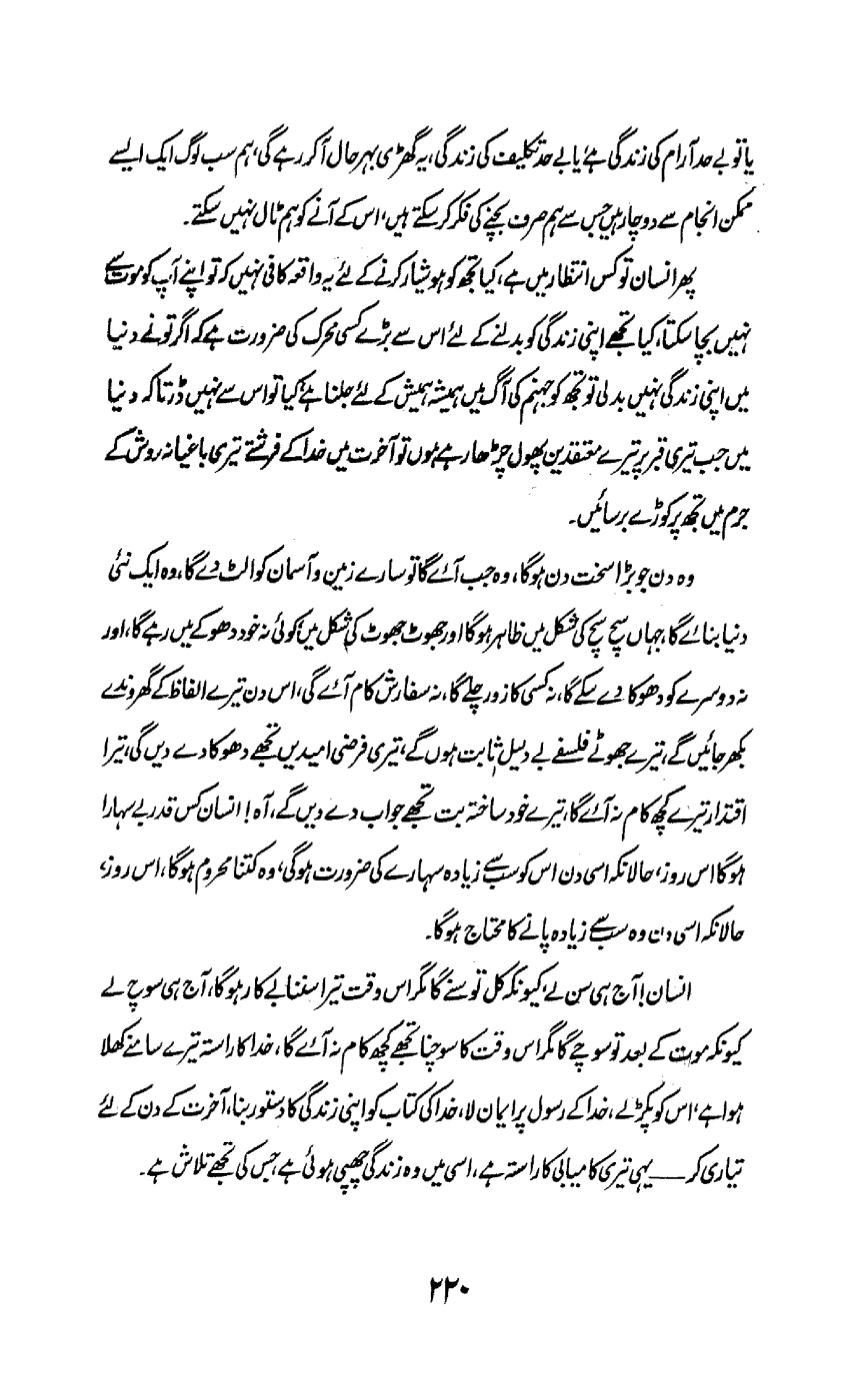 یا تو بے حد آرام کی زندگی ہے، یا بے حد تکلیف کی زندگی، یہ گھڑی بہر حال آکر رہے گی، ہم سب لوگ ایک ایسے
ممکن انجام سے دوچار ہیں جس سے ہم صرف بچنے کی فکر کرسکتے ہیں، اس کے آنے کو ہم ٹال نہیں سکتے۔
پھر انسان تو کس انتظار میں ہے، کیا تجھ کو ہوشیار کرنے کے لئے یہ واقعہ کافی نہیں کہ تو اپنے آپ کو موت سے
نہیں بچا سکتا، کیا تجھے اپنی زندگی کو بدلنے کے لئے اس سے بڑے کسی محرک کی ضرورت ہے کہ اگر تونے دنیا
میں اپنی زندگی نہیں بدلی تو تجھ کو جہنم کی آگ میں ہمیشہ ہمیش کے لئے جلنا ہے، کیا تو اس سے نہیں ڈرتا کہ دنیا
میں جب تیری قبر پر تیرے معتقدین پھول چڑھا رہے ہوں تو آخرت میں خدا کے فرشتے تیری باغیانہ روش کے
جرم میں تجھ پر کوڑے برسائیں۔
وہ دن جو بڑا سخت دن ہوگا، وہ جب آئے گا تو سارے زمین و آسمان کو الٹ دے گا، وہ ایک نئی
دنیا بنائے گا، جہاں سچ سچ کی شکل میں ظاہر ہوگا اور جھوٹ جھوٹ کی شکل میں، کوئی نہ خود دھوکے میں رہے گا، اور
نہ دوسرے کو دھوکا دے سکے گا، نہ کسی کا زور چلے گا، نہ سفارش کام آئے گی، اس دن تیرے الفاظ کے گھروندے
بکھر جائیں گے، تیرے جھوٹے فلسفے بے دلیل ثابت ہوں گے، تیری فرضی امیدیں تجھے دھوکا دے دیں گی، تیرا
اقتدار تیرے کچھ کام نہ آئے گا، تیرے خود ساختہ بت تجھے جواب دے دیں گے، آہ! انسان کس قدر بے سہارا
ہوگا اس روز، حالانکہ اسی دن اس کو سب سے زیادہ سہارے کی ضرورت ہوگی، وہ کتنا محروم ہوگا، اس روز،
حالانکہ اسی دن وہ سب سے زیادہ پانے کا محتاج ہوگا۔
انسان! آج ہی سن لے، کیونکہ کل تو سنے گا مگر اس وقت تیرا سننا بے کار ہوگا، آج ہی سوچ لے
کیونکہ موت کے بعد تو سوچے گا مگر اس وقت کا سوچنا تجھے کچھ کام نہ آئے گا، خدا کا راستہ تیرے سامنے کھلا
ہوا ہے، اس کو پکڑ لے، خدا کے رسول پر ایمان لا، خدا کی کتاب کو اپنی زندگی کا دستور بنا، آخرت کے دن کے لئے
تیاری کر ـــ یہی تیری کامیابی کا راستہ ہے، اسی میں وہ زندگی چھپی ہوئی ہے، جس کی تجھے تلاش ہے۔
۲۲۰